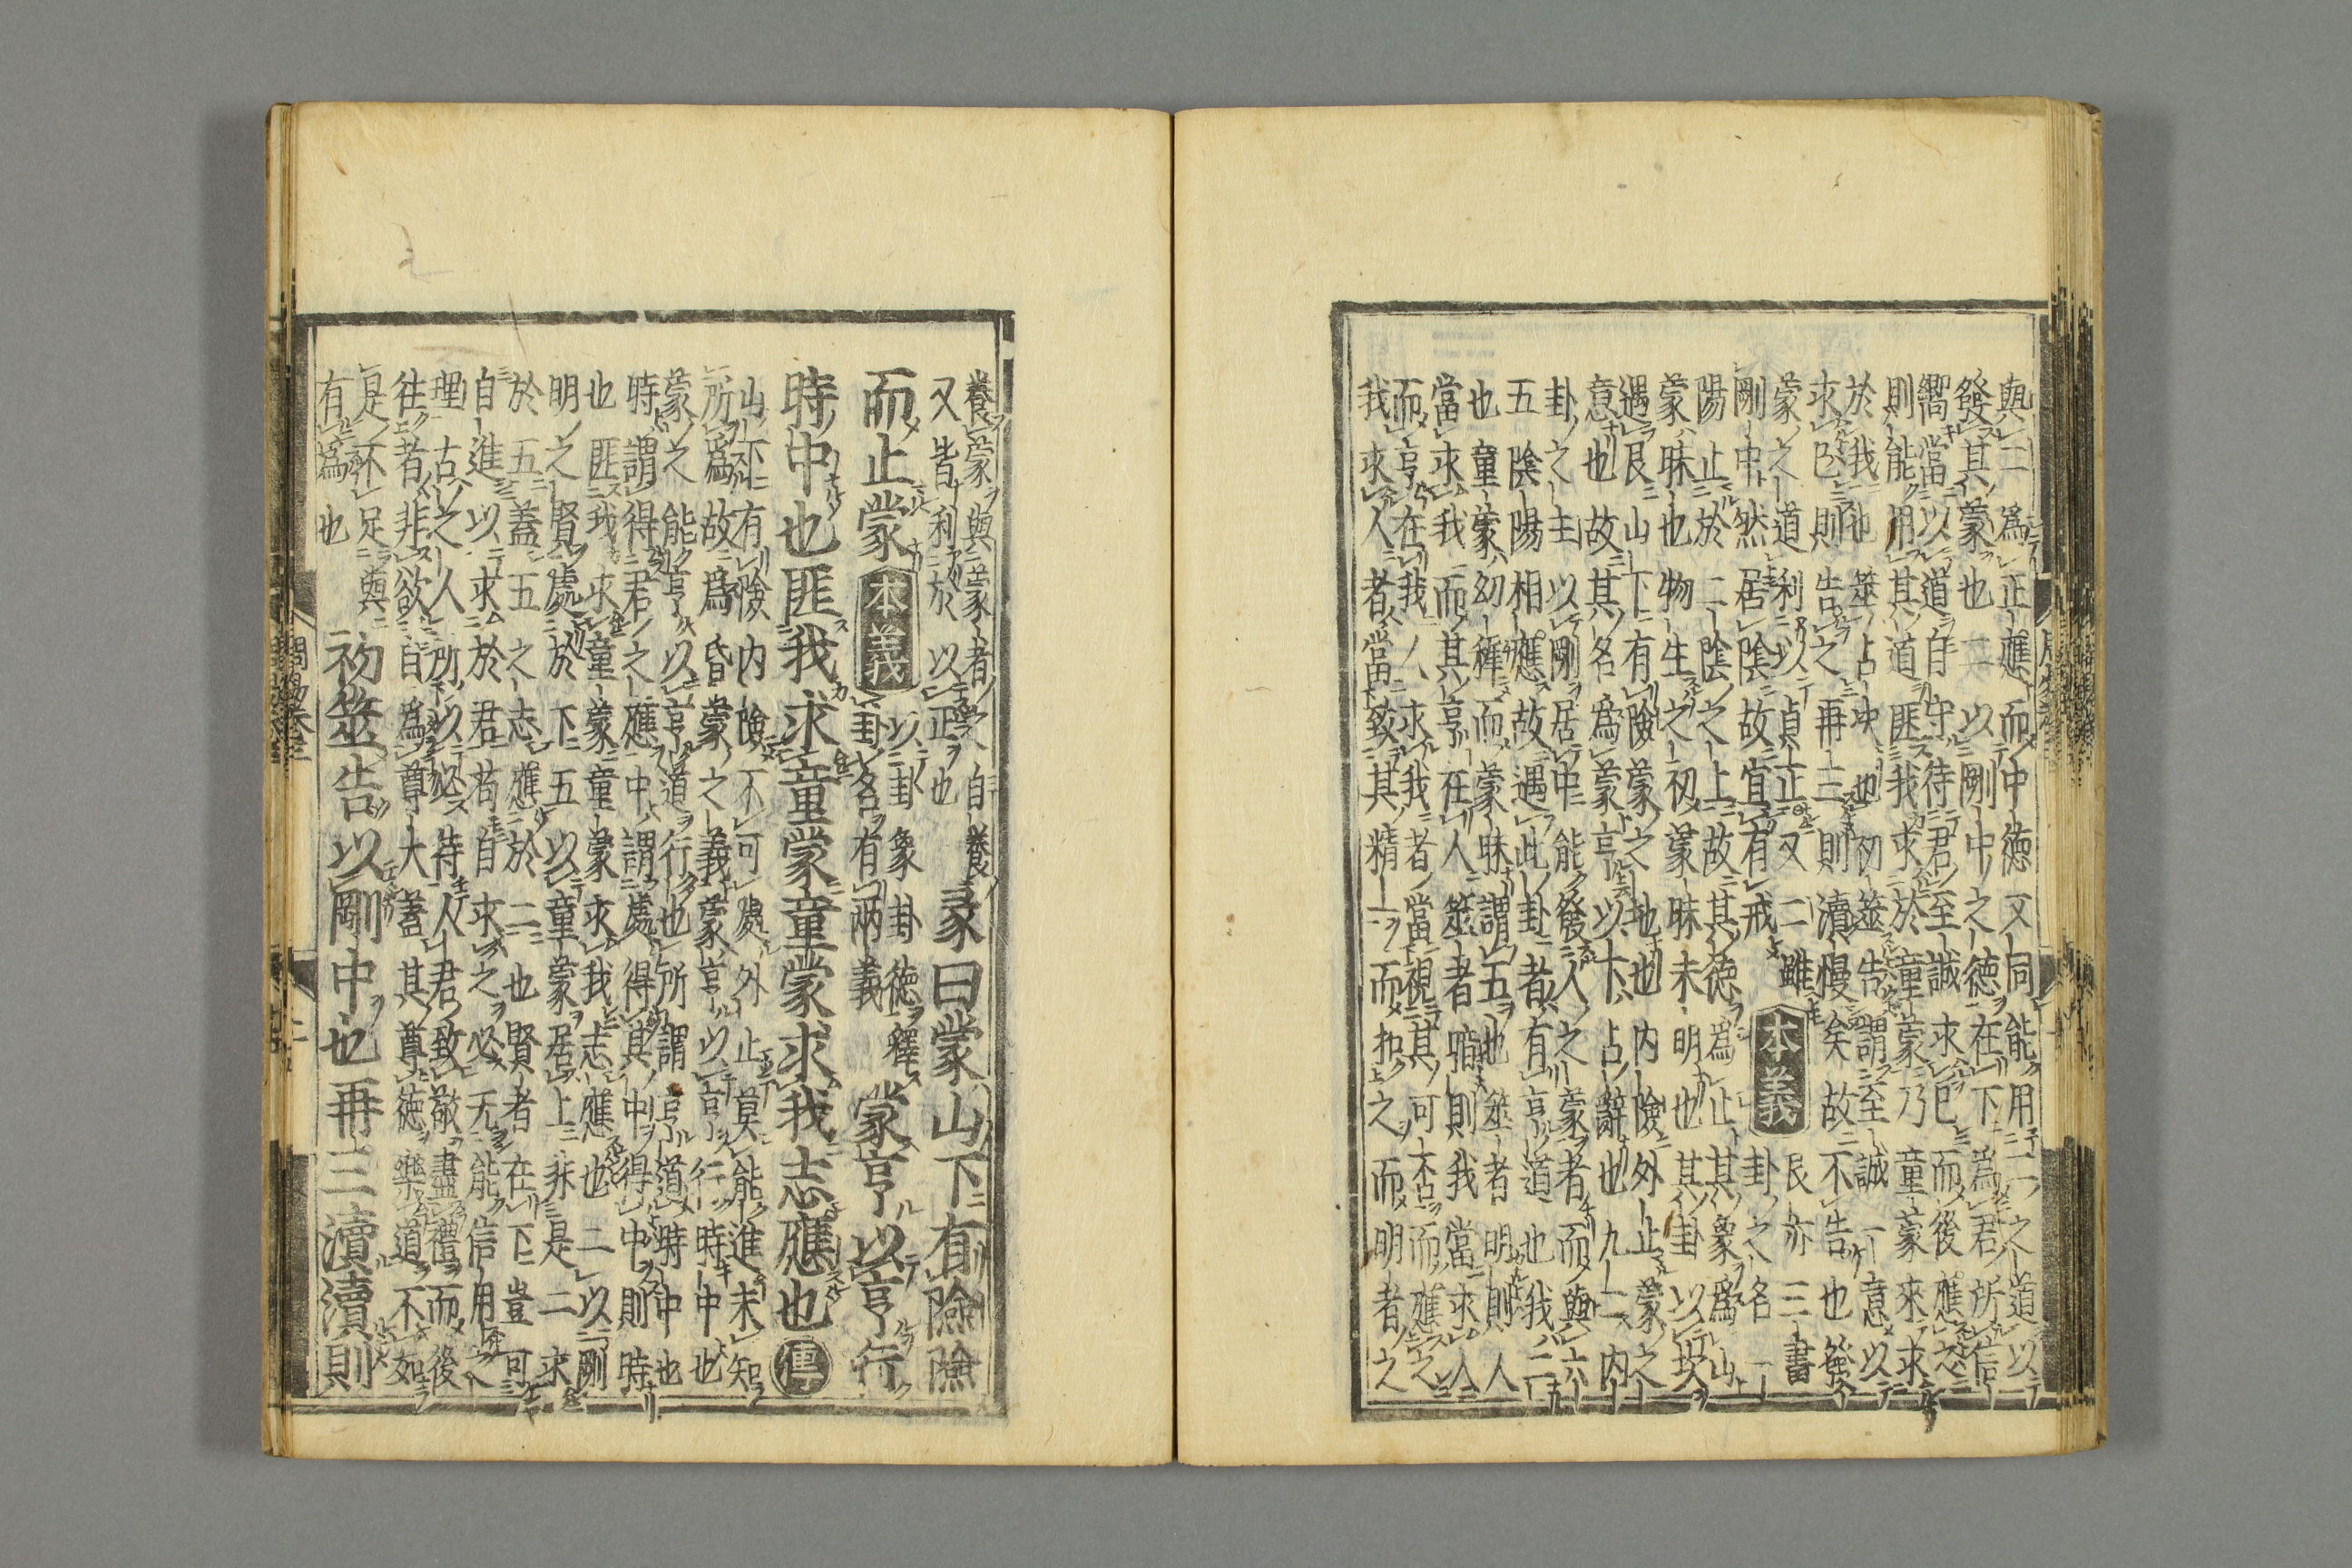 與二爲正應而中德又同能用二之道以
發其蒙也二以剛中之德在下爲君所信
嚮當以道自守待君至誠求己而後應之
則能用其道匪我求於童蒙乃童蒙來求
於我也筮占決也初筮告謂至誠一意以
求己則告之再三則瀆慢矣故不告也發
蒙之道利以貞正又二雖
剛中然居陰故宜有戒
本義
艮亦三畫
卦之名一
陽止於二陰之上故其德爲止其象爲山
蒙昧也物生之初蒙昧未明也其卦以坎
遇艮山下有險蒙之地也内險外止蒙之
意也故其名爲蒙亨以下占辭也九二内
卦之主以剛居中能發人之蒙者而與六
五陰陽相應故遇此卦者有亨道也我二
也童蒙幼穉而蒙昧謂五也筮者明則人
當求我而其亨在人筮者暗則我當求人
而亨在我人求我者當視其可否而應之
我求人者當致其精一而扣之而明者之
養蒙與蒙者之自養
又皆利於以正也
彖曰蒙山下有險險
而止蒙
本義
以卦象卦德釋
卦名有兩義
蒙亨以亨行
時中也匪我求童蒙童蒙求我志應也傳
山下有險内險不可處外止莫能進未知
所爲故爲昏蒙之義蒙亨以亨行時中也
蒙之能亨以亨道行也所謂亨道時中也
時謂得君之應中謂處得其中得中則時
也匪我求童蒙童蒙求我志應也二以剛
明之賢處於下五以童蒙居上非是二求
於五蓋五之志應於二也賢者在下豈可
自進以求於君苟自求之必无能信用之
理古之人所以必待人君致敬盡禮而後
往者非欲自爲尊大蓋其尊德樂道不如
是不足與
有爲也
初筮告以剛中也再三瀆瀆則